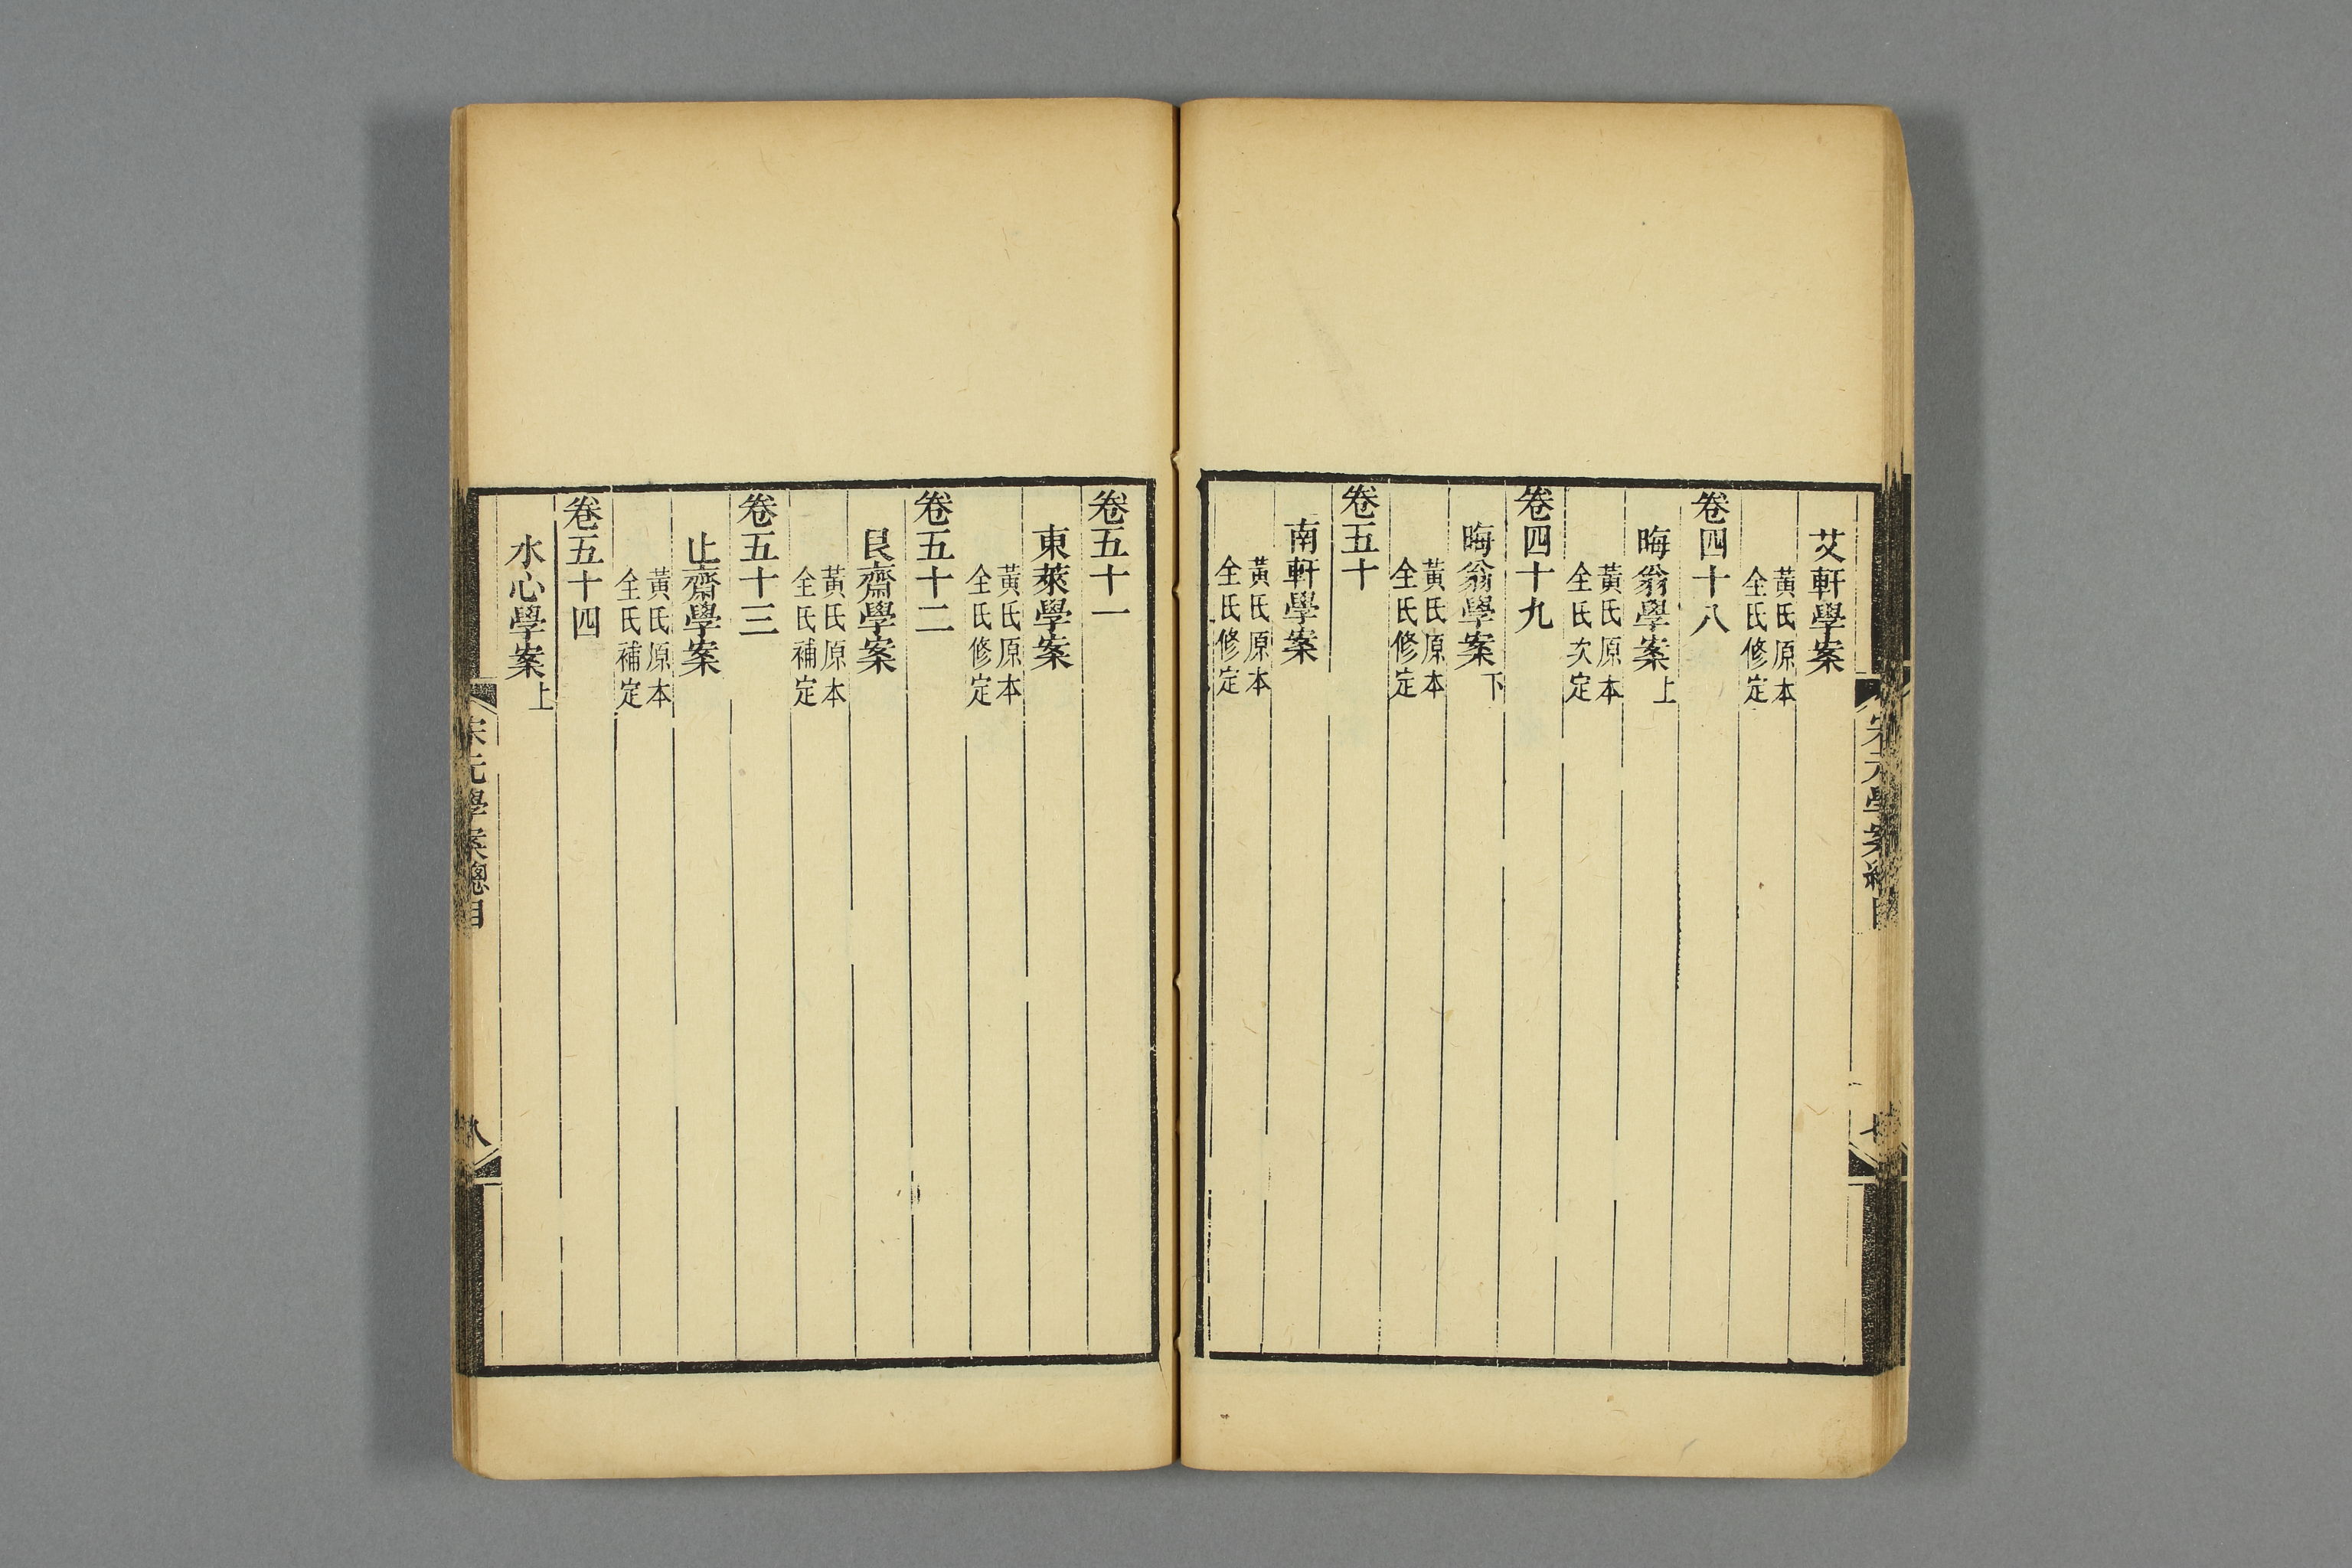 艾軒學案
黃氏原本
全氏修定
卷四十八
晦翁學案上
黃氏原本
全氏次定
卷四十九
晦翁學案下
黃氏原本
全氏修定
卷五十
南軒學案
黃氏原本
全氏修定
宋元學案總目
七
卷五十一
東萊學案
黃氏原本
全氏修定
卷五十二
艮齋學案
黃氏原本
全氏補定
卷五十三
止齋學案
黃氏原本
全氏補定
卷五十四
水心學案上
宋元學案總目
八